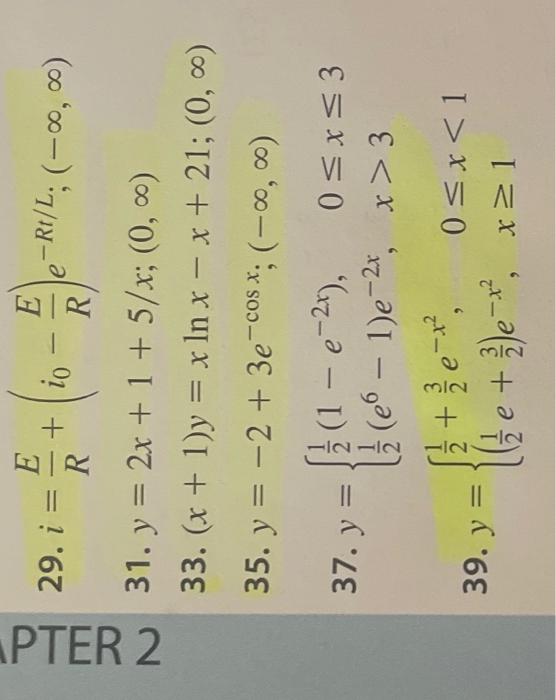 29. i = E/R + (i₀ − E/R)e^(−Rt/L); (−∞, ∞)
31. y = 2x + 1 + 5/x; (0, ∞)
33. (x + 1)y = x ln x − x + 21; (0, ∞)
35. y = −2 + 3e^(−cos x); (−∞, ∞)
37. y = { ½(1 − e^(−2x)), 0 ≤ x ≤ 3
½(e⁶ − 1)e^(−2x), x > 3
39. y = { ½ + 3/2 e^(−x²), 0 ≤ x < 1
(½e + 3/2)e^(−x²), x ≥ 1
APTER 2